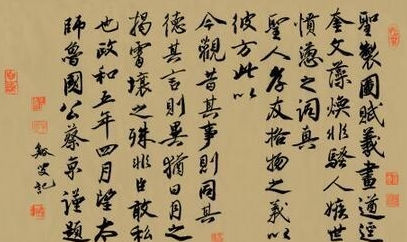 聖製圖賦羲畫道
奎文藻煥非騷人嫉世
憤懣之詞真
聖人孝友物之義以
彼方此以
今觀昔其事則同其
德其言則異猶日月之
揭霄壤之殊非臣敢私
也政和五年四月望太
師魯國公蔡京謹題
記